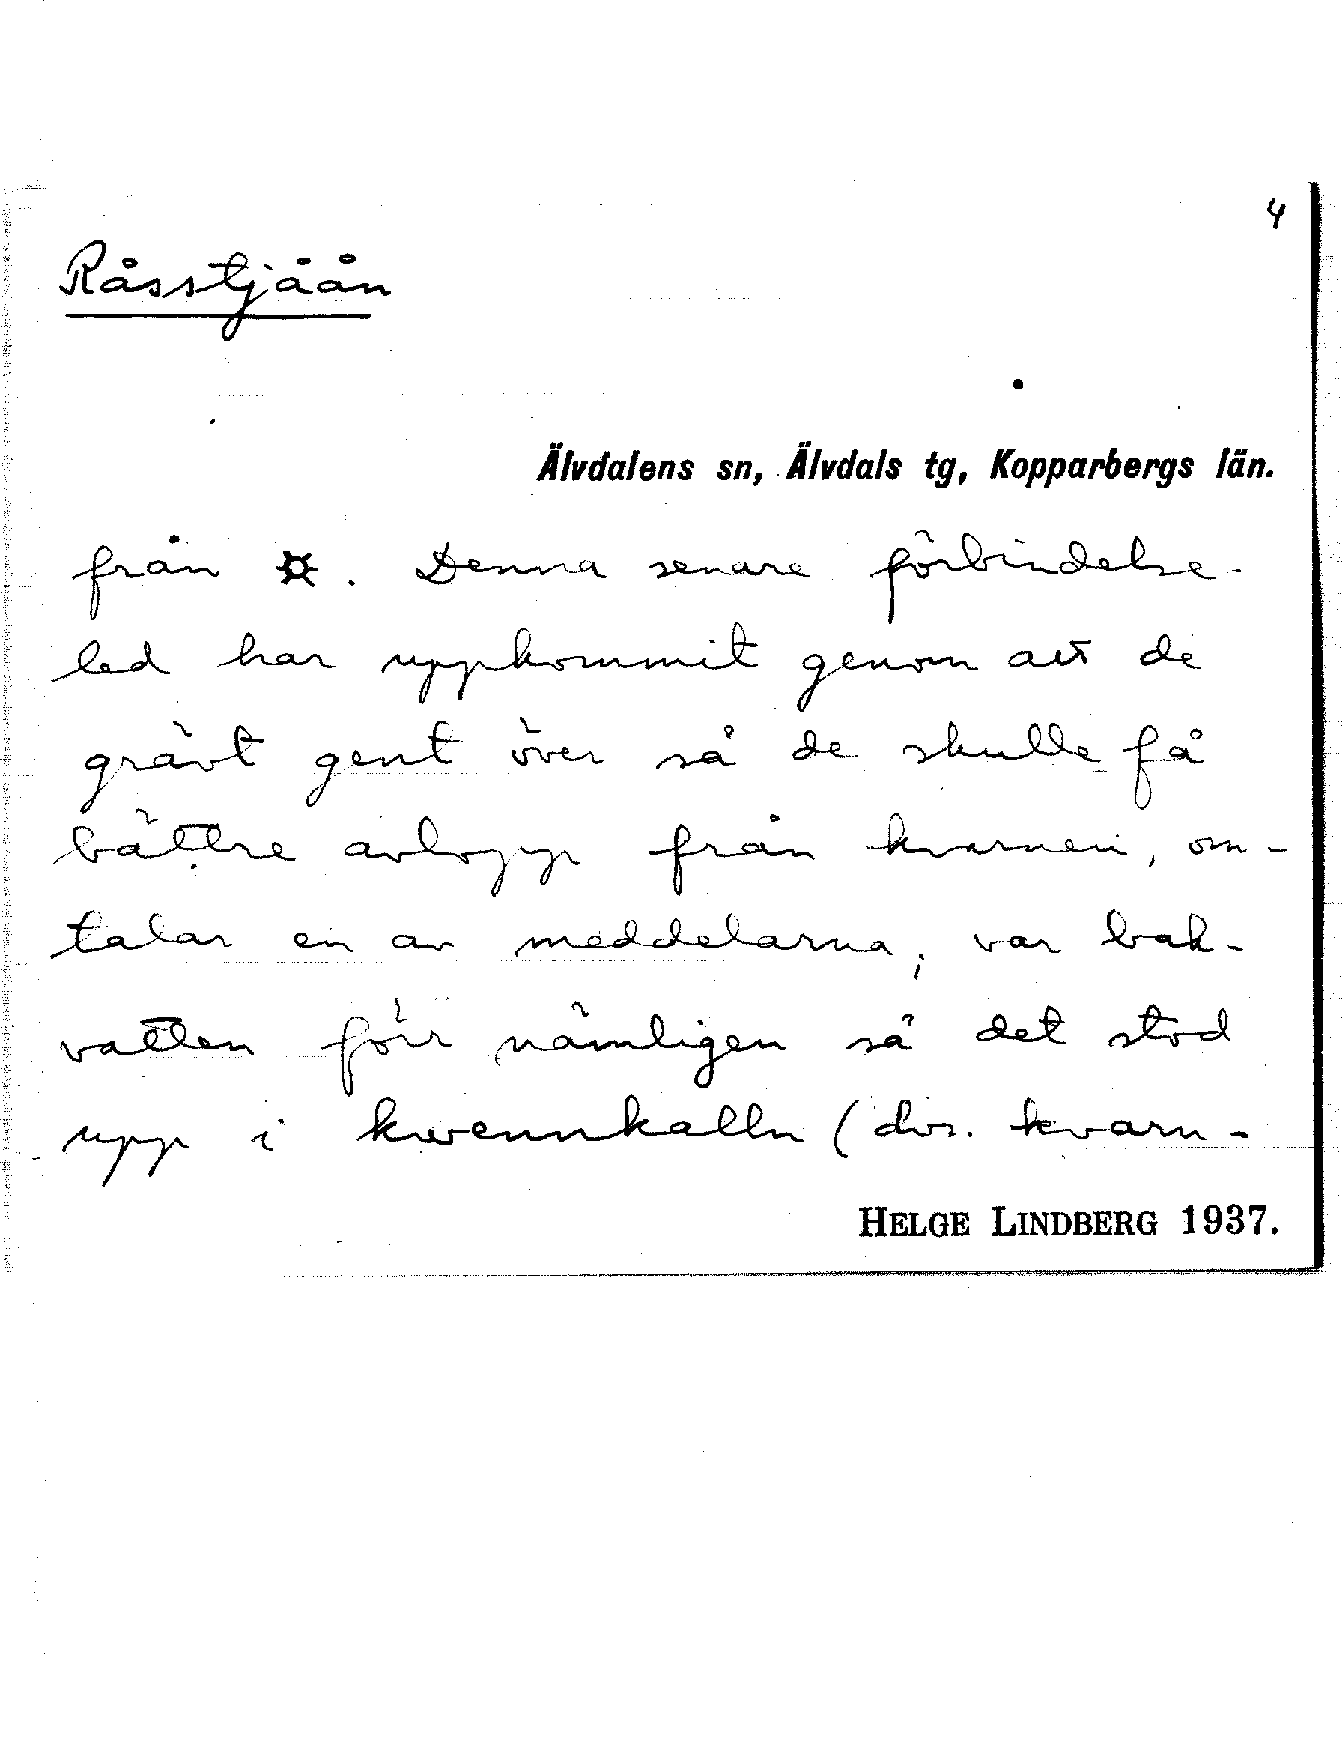 4
Råsstjåån
Älvdalens sn, Älvdals tg, Kopparbergs län.
från ¤. Denna senare förbindelse-
led har uppkommit genom att de
grävt gent över så de skulle få
bättre avlopp från kvarnen, om-
talar en av meddelarna; var bak-
vatten förr nämligen så det stod
upp i kwennkalln (dvs. kvarn-
HELGE LINDBERG 1937.